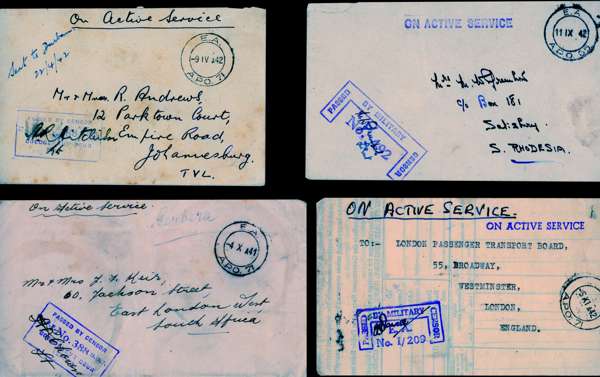 On Active Service
Sent to Durban
22/4/42
E.A.
-9 IV 42
A.P.O. 71
Mr & Mrs. R. Andrews,
12 Parktown Court,
Empire Road,
Johannesburg.
TVL.
PASSED BY CENSOR
ON ACTIVE SERVICE
E.A.
11 IX 42
PASSED BY MILITARY CENSOR
No.
c/o Box 181
Salisbury
S. RHODESIA.
On Active Service.
Berbera
E.A.
-4 X 41
A.P.O. 71
Mr & Mrs J. F. Keir,
60, Jackson Street
East London West,
South Africa
PASSED BY CENSOR
No.
ON ACTIVE SERVICE.
ON ACTIVE SERVICE
TO:- LONDON PASSENGER TRANSPORT BOARD,
55, BROADWAY,
WESTMINSTER,
LONDON,
ENGLAND.
-5 XI 42
A.P.O. 71
PASSED BY MILITARY CENSOR
E.A.
No. 1/209